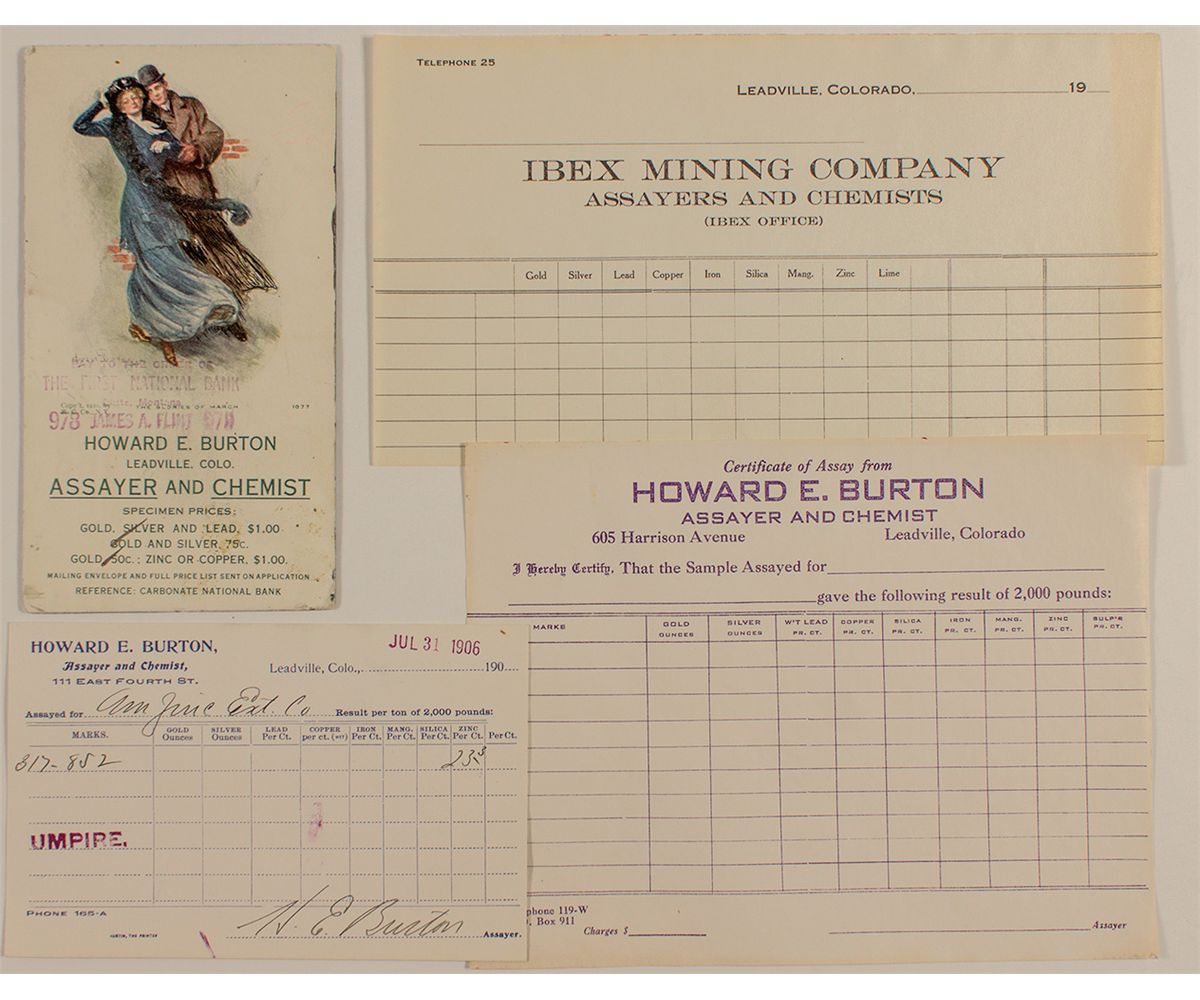 PAY TO THE ORDER OF
THE FIRST NATIONAL BANK
Butte, Montana
THE GLORIES OF MARCH 1077
978 JAMES A. FLINT 978
HOWARD E. BURTON
LEADVILLE, COLO.
ASSAYER AND CHEMIST
SPECIMEN PRICES:
GOLD, SILVER AND LEAD, $1.00
GOLD AND SILVER, 75c.
GOLD, 50c.; ZINC OR COPPER, $1.00.
MAILING ENVELOPE AND FULL PRICE LIST SENT ON APPLICATION
REFERENCE: CARBONATE NATIONAL BANK
TELEPHONE 25
LEADVILLE, COLORADO, 19
IBEX MINING COMPANY
ASSAYERS AND CHEMISTS
(IBEX OFFICE)
Gold Silver Lead Copper Iron Silica Mang. Zinc Lime
Certificate of Assay from
HOWARD E. BURTON
ASSAYER AND CHEMIST
605 Harrison Avenue Leadville, Colorado
I Hereby Certify, That the Sample Assayed for
gave the following result of 2,000 pounds:
MARKS GOLD OUNCES SILVER OUNCES W'T LEAD PR. CT. COPPER PR. CT. SILICA PR. CT. IRON PR. CT. MANG. PR. CT. ZINC PR. CT. SULP'R PR. CT.
phone 119-W
. Box 911
Charges $ Assayer
HOWARD E. BURTON, JUL 31 1906
Assayer and Chemist, Leadville, Colo., 190
111 EAST FOURTH ST.
Assayed for Am Zinc Ext. Co Result per ton of 2,000 pounds:
MARKS. GOLD Ounces SILVER Ounces LEAD Per Ct. COPPER per ct. (wet) IRON Per Ct. MANG. Per Ct. SILICA Per Ct. ZINC Per Ct. Per Ct.
317-852 23.3
UMPIRE.
PHONE 165-A
H. E. Burton Assayer.